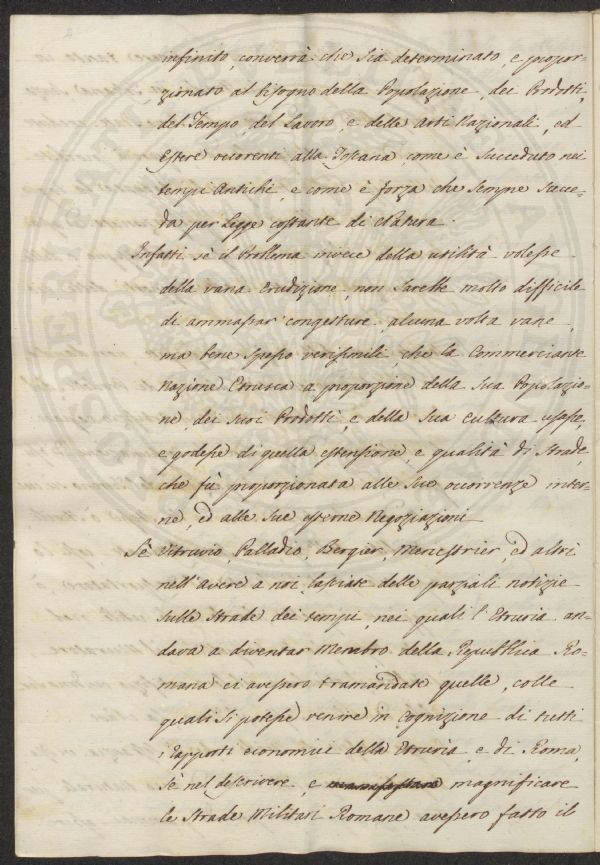 infinito, converrà che sia determinato, e propor=
zionato al bisogno della Popolazione, dei Prodotti,
del Tempo, del Lavoro, e delle Arti Nazionali, ed
Estere ocorenti alla Toscana, come è succeduto nei
tempi Antichi, e come è forza che sempre succe=
da per Legge costante di Natura.
Infatti sè il Problema invece della utilità volesse
della vana erudizione, non sarebbe molto difficile
di ammassar congetture alcuna volta vane,
ma bene spesso verisimili, che la Commerciante
Nazione Etrusca a proporzione della Sua Popolazio=
ne, dei suoi Prodotti, e della Sua cultura usasse,
e godesse di quella estensione, e qualità di Strade,
che fù proporzionata alle Sue ocorrenze inter=
ne, ed alle Sue esterne Negoziazioni.
Sè Vitruvio, Palladio, Bergier, Menestrier, ed altri
nell'avere a noi lasciate delle parziali notizie
sulle Strade dei tempi, nei quali l'Etruria an=
dava a diventar Membro della Repubblica Ro=
mana ci avessero tramandate quelle, colle
quali si potesse venire in cognizione di tutti
i rapporti economici della Etruria, e di Roma,
sè nel descrivere, e magnificare
le Strade Militari Romane avessero fatto il